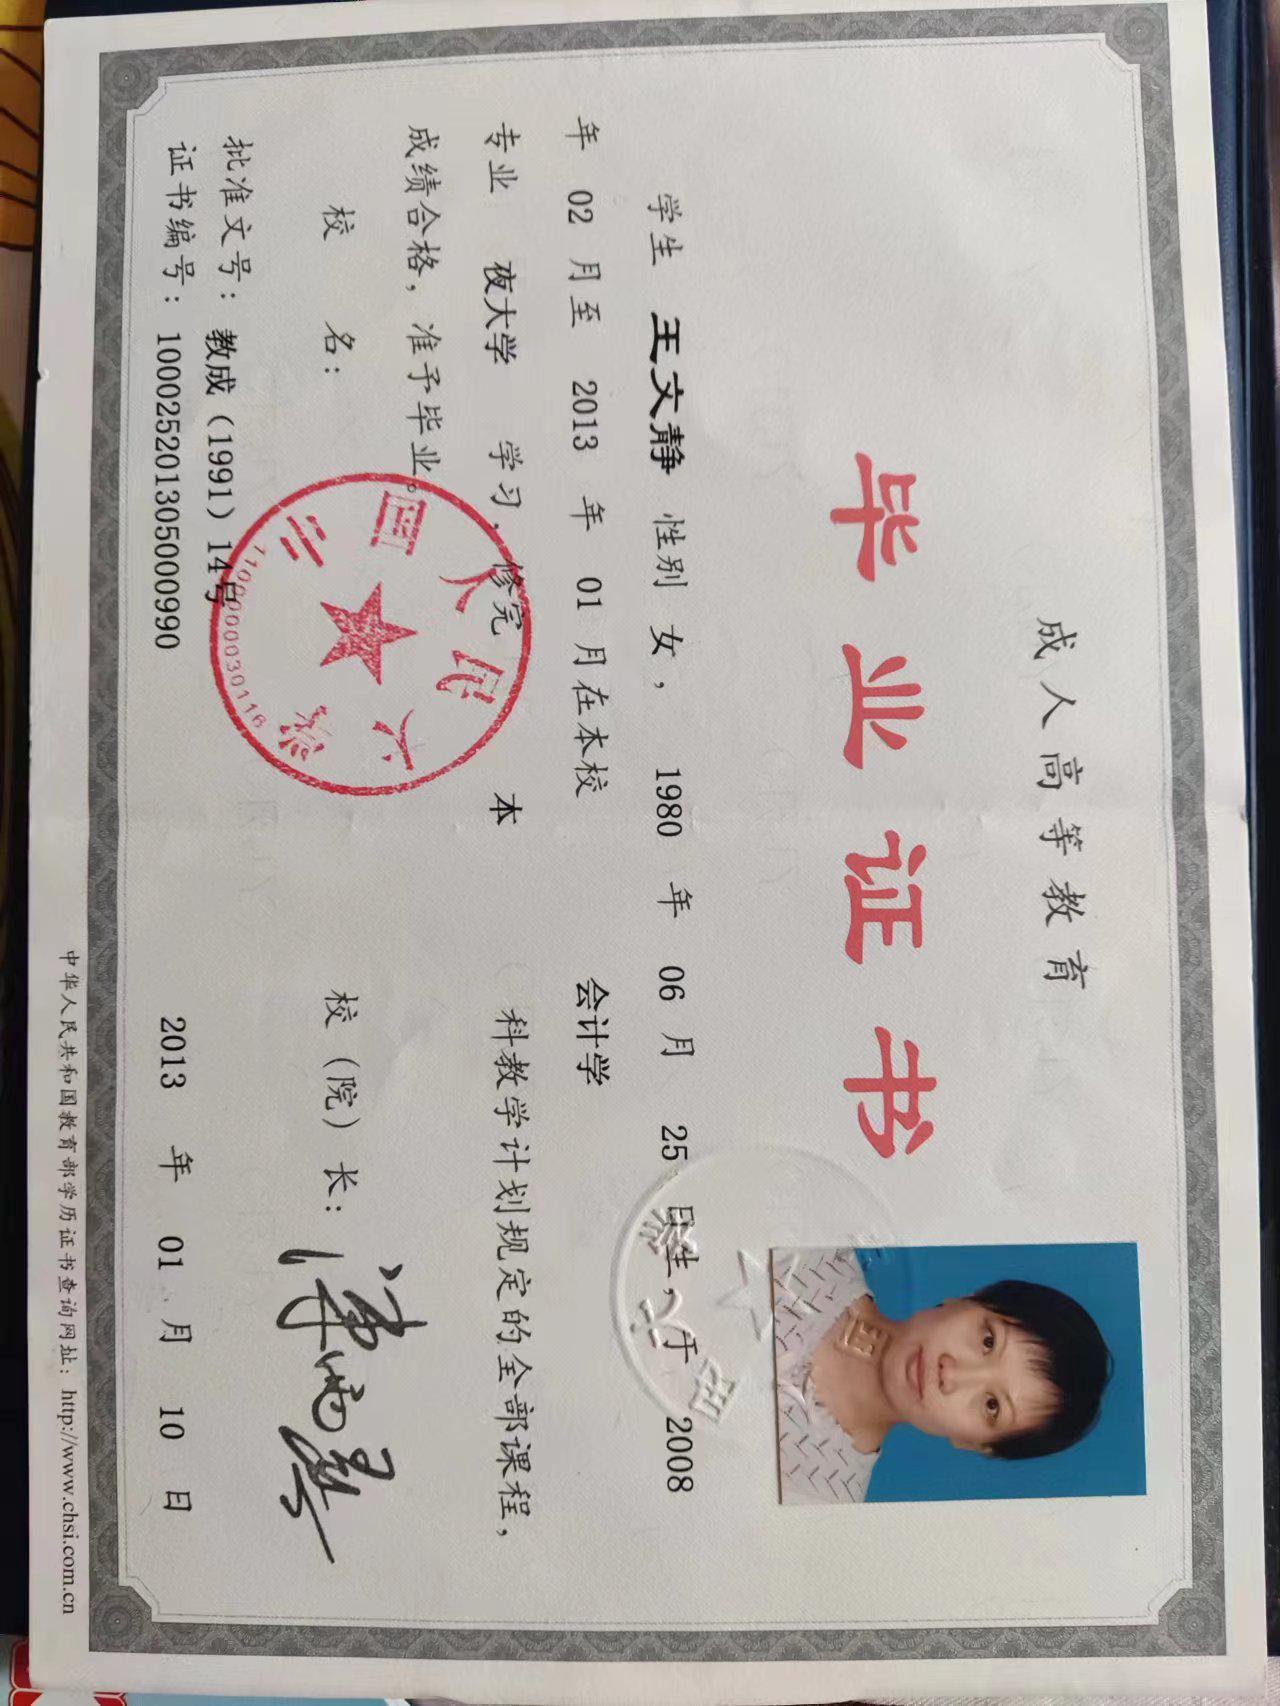 成人高等教育
毕业证书
学生 王文静 性别 女， 1980 年 06 月 25 日生，于 2008
年 02 月至 2013 年 01 月在本校 会计学
专业 夜大学 学习，修完 本 科教学计划规定的全部课程，
成绩合格，准予毕业。
校 名： 校（院）长：
中国人民大学
1100000030116
批准文号：教成（1991）14号
证书编号：100025201305000990 2013 年 01 月 10 日
中华人民共和国教育部学历证书查询网址：http://www.chsi.com.cn